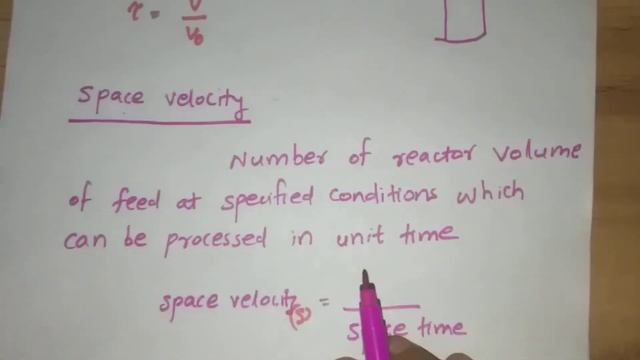 τ = V / V₀
Space velocity
Number of reactor volume
of feed at specified conditions which
can be processed in unit time
space velocity (s) = / space time